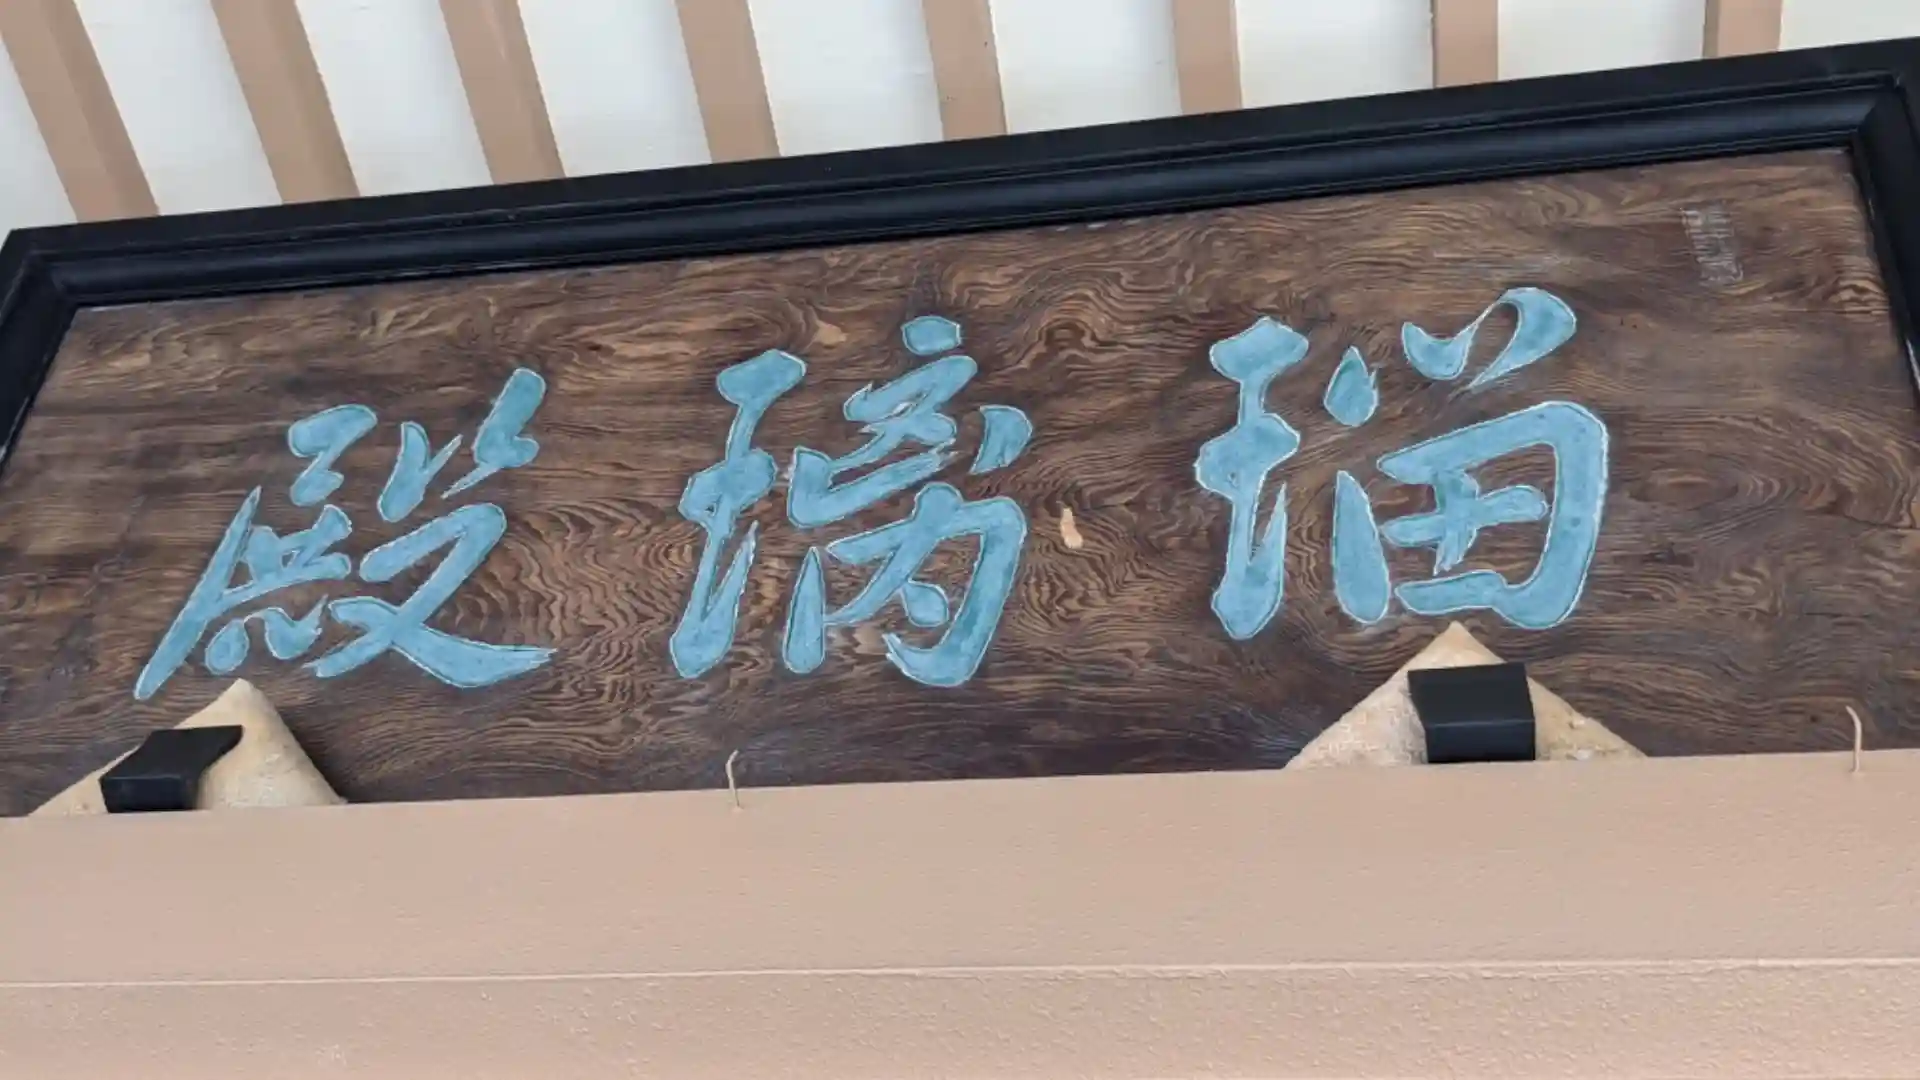 瑠璃殿